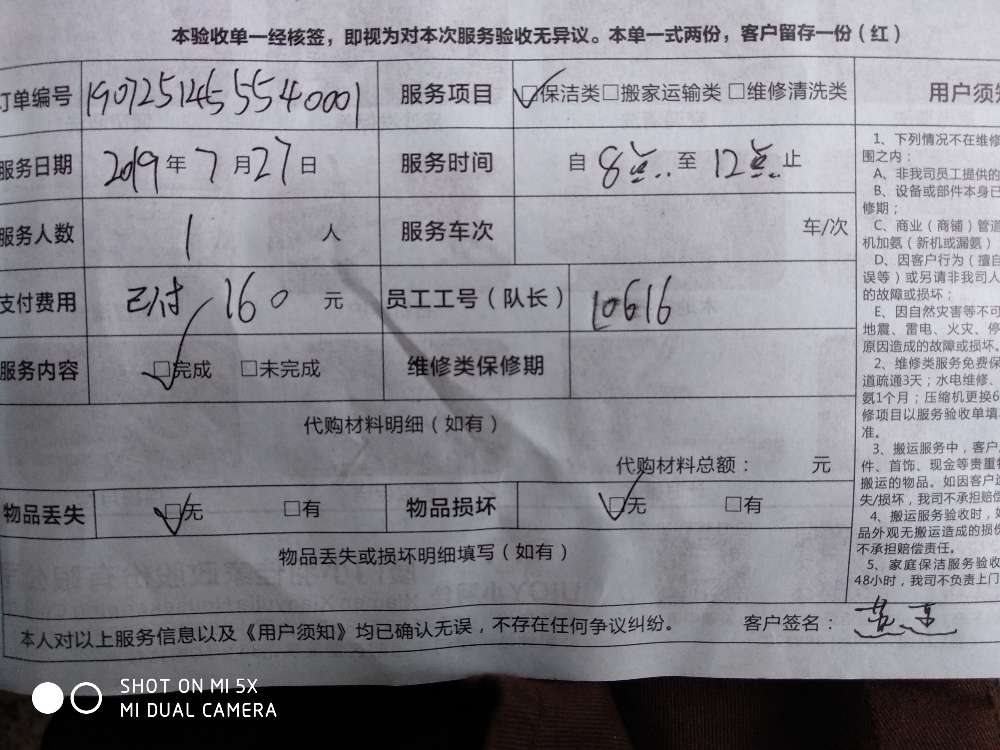 本验收单一经核签，即视为对本次服务验收无异议。本单一式两份，客户留存一份（红）
订单编号 1907251455540001 服务项目 ☑保洁类□搬家运输类 □维修清洗类
服务日期 2019年7月27日 服务时间 自 8点 至 12点 止
服务人数 1 人 服务车次 车/次
支付费用 已付 160 元 员工工号（队长） 10616
服务内容 ☑完成 □未完成 维修类保修期
代购材料明细（如有）
代购材料总额： 元
物品丢失 ☑无 □有 物品损坏 ☑无 □有
物品丢失或损坏明细填写（如有）
本人对以上服务信息以及《用户须知》均已确认无误，不存在任何争议纠纷。 客户签名：
用户须知
1、下列情况不在维修
围之内：
A、非我司员工提供的
B、设备或部件本身已
修期；
C、商业（商铺）管道
机加氨（新机或漏氨）
D、因客户行为（擅自
误等）或另请非我司人
的故障或损坏；
E、因自然灾害等不可
地震、雷电、火灾、停
原因造成的故障或损坏。
2、维修类服务免费保
道疏通3天；水电维修、
氨1个月；压缩机更换6
修项目以服务验收单填
准。
3、搬运服务中，客户
件、首饰、现金等贵重物
搬运的物品。如因客户
失/损坏，我司不承担赔偿
4、搬运服务验收时，如
品外观无搬运造成的损伤
不承担赔偿责任。
5、家庭保洁服务验收
48小时，我司不负责上门
SHOT ON MI 5X
MI DUAL CAMERA